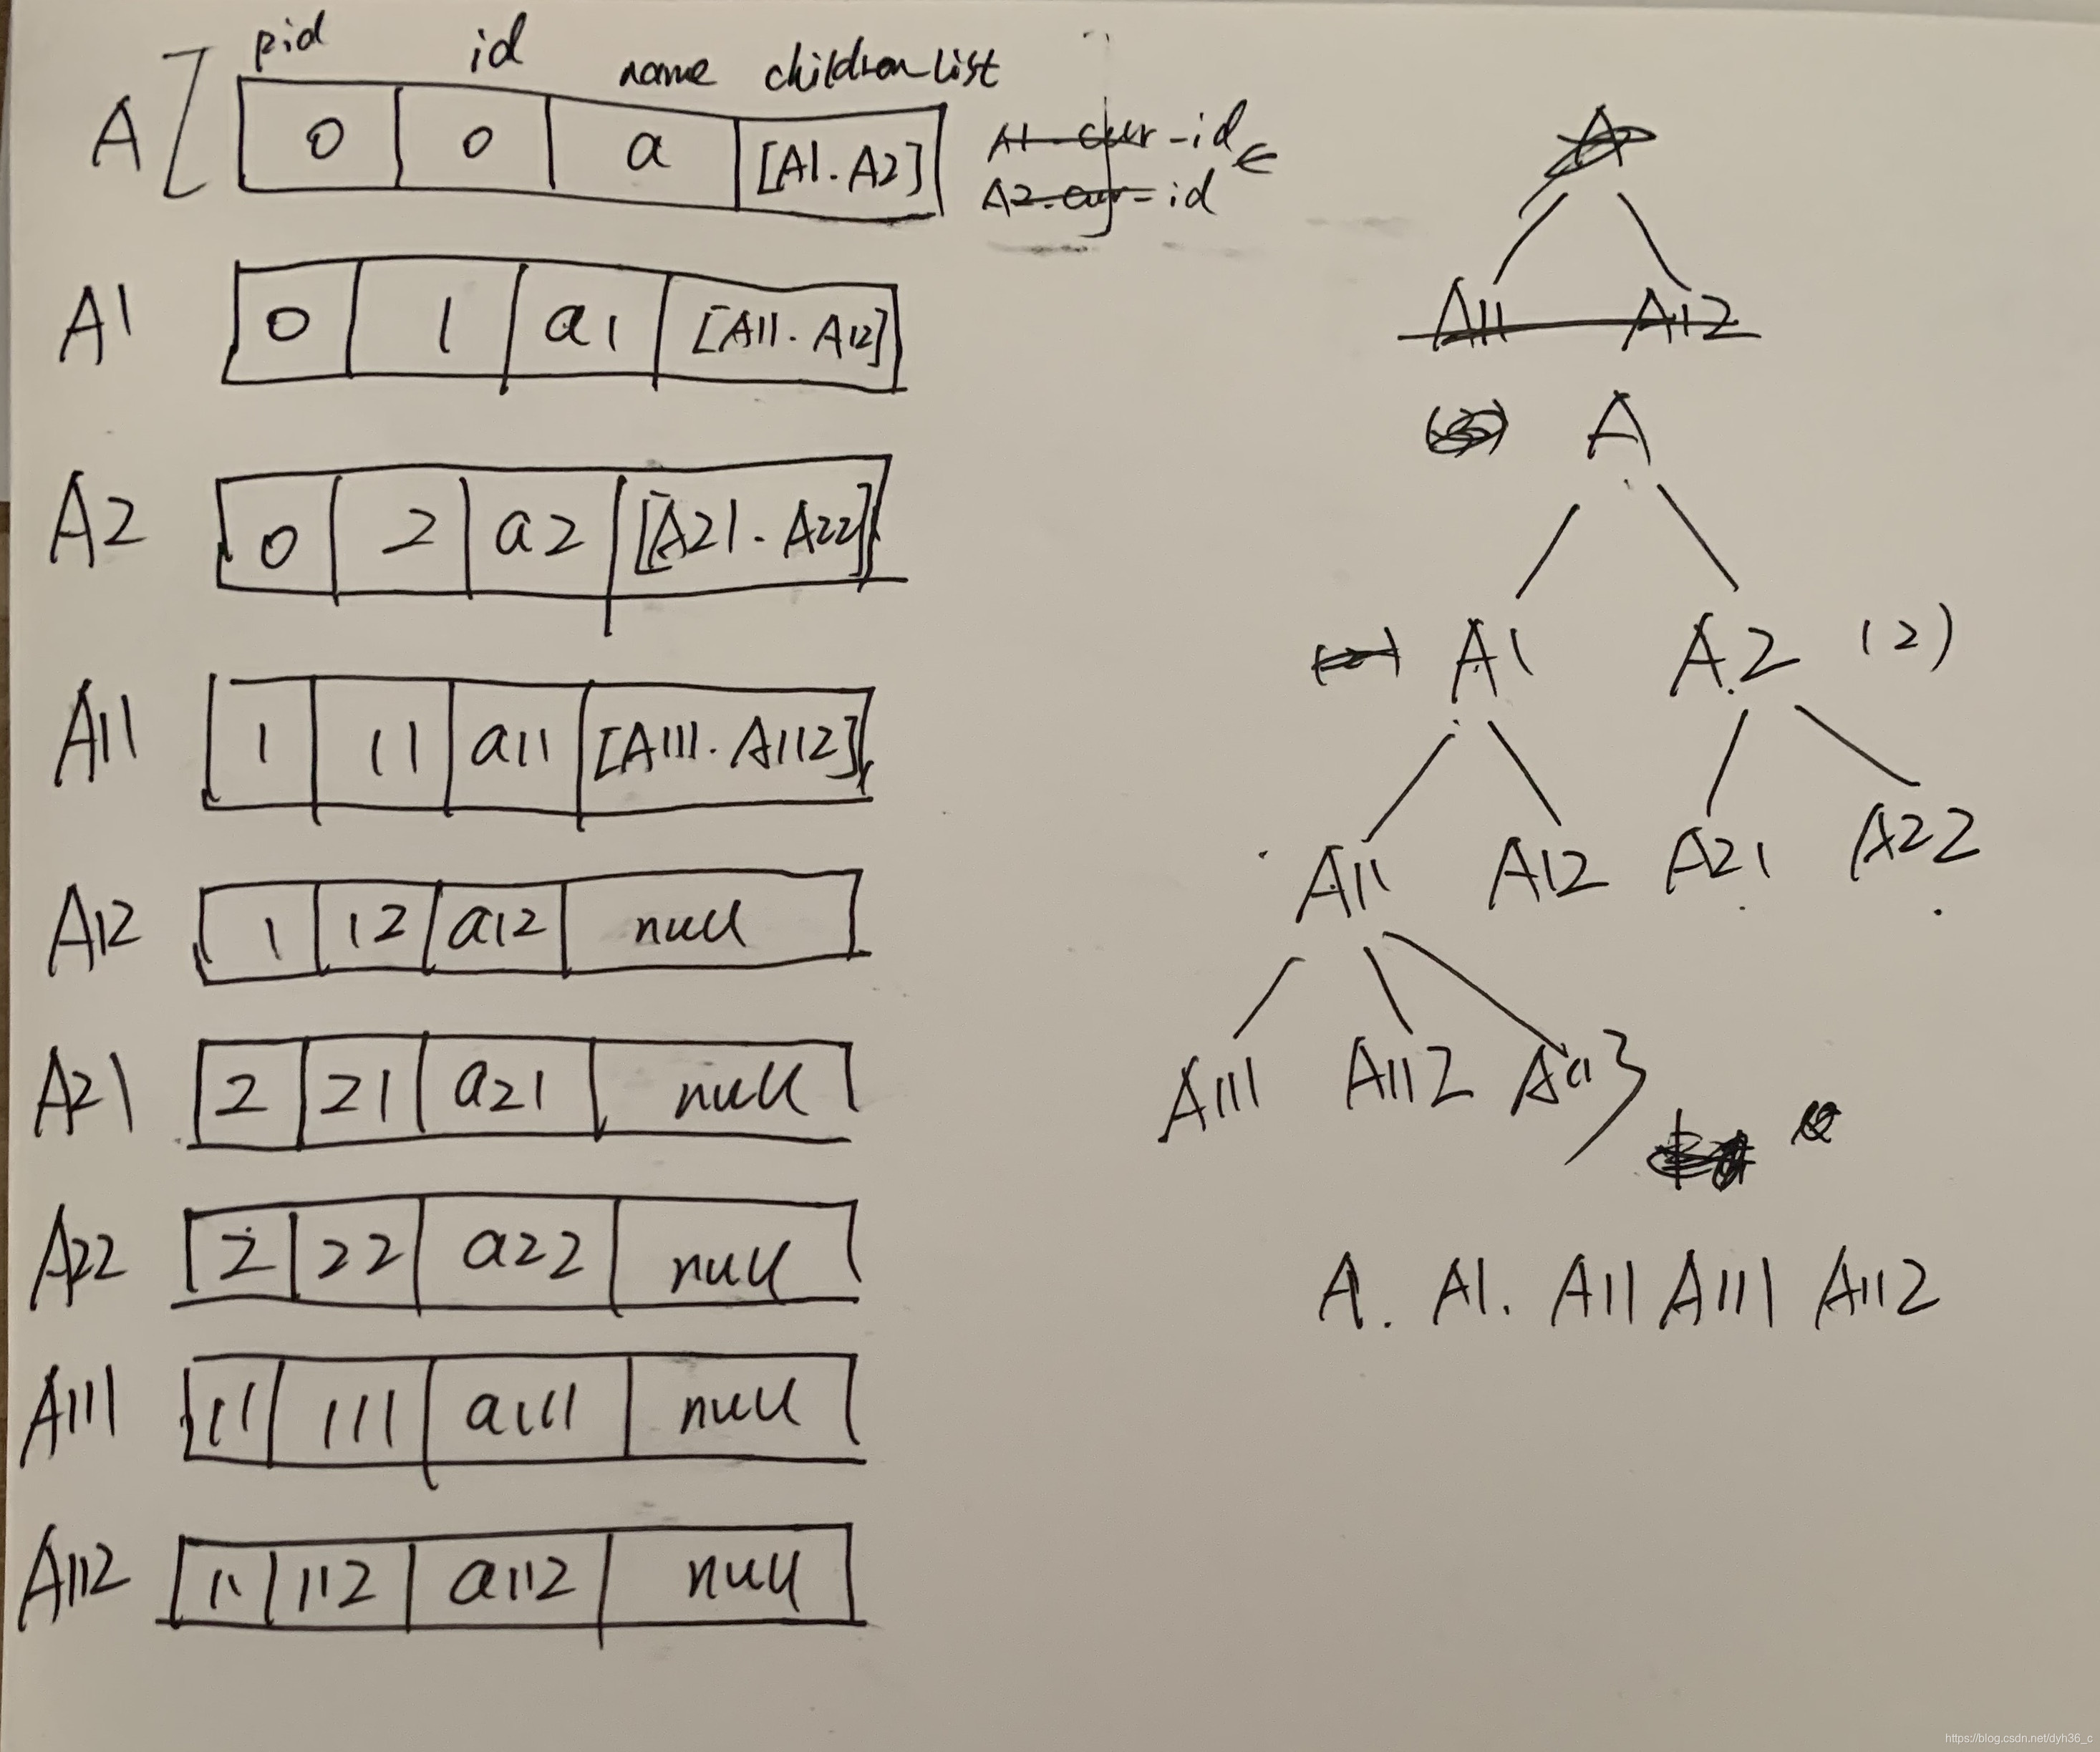 pid id name children list
A 0 0 a [A1. A2]
A1 cur-id
A2. cur-id
A1 0 1 a1 [A11. A12]
A2 0 2 a2 [A21. A22]
A11 1 11 a11 [A111. A112]
A12 1 12 a12 null
A21 2 21 a21 null
A22 2 22 a22 null
A111 11 111 a111 null
A112 11 112 a112 null
A
A11 A12
A
A1 A2 (2)
A11 A12 A21 A22
A111 A112 A113
A. A1. A11 A111 A112
https://blog.csdn.net/dyh36_c